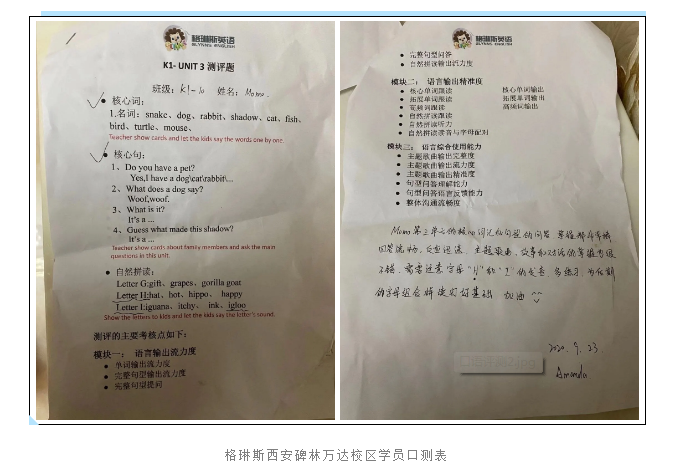 格琳斯英语
GLYNNS ENGLISH
K1- UNIT 3 测评题
班级: K1-10 姓名: Momo.
核心词:
1.名词: snake、dog、rabbit、shadow、cat、fish、
bird、turtle、mouse、
Teacher show cards and let the kids say the words one by one.
核心句:
1、 Do you have a pet?
Yes,I have a dog\cat\rabbit\...
2、 What does a dog say?
Woof,woof.
3、 What is it?
It's a ...
4、 Guess what made this shadow?
It's a ...
Teacher show cards about family members and ask the main
questions in this unit.
自然拼读:
Letter G:gift、grapes、gorilla goat
Letter H:hat、hot、hippo、 happy
Letter I:iguana、itchy、 ink、igloo
Show the letters to kids and let the kids say the letter's sound.
测评的主要考核点如下:
模块一: 语言输出流力度
单词输出流力度
完整句型输出流力度
完整句型提问
格琳斯英语
GLYNNS ENGLISH
完整句型问答
自然拼读输出流力度
模块二: 语言输出精准度
核心单词跟读 核心单词输出
拓展单词跟读 拓展单词输出
视频词跟读 高频词输出
自然拼读跟读
自然拼读听力
自然拼读读音与字母配对
模块三: 语言综合使用能力
主题歌曲输出完整度
主题歌曲输出流力度
主题歌曲输出精准度
句型问答理解能力
句型问答语言反馈能力
整体沟通流畅度
Momo 第三单元的核心词汇和句型的问答 掌握都非常棒
回答流畅，反应迅速，主题歌曲，故事和对话的掌握也很
不错，需要注意字母"H"和"I"的发音，多练习，为后期
的字母组合拼读打好基础 加油
2020.9.23
Amanda
格琳斯西安碑林万达校区学员口测表